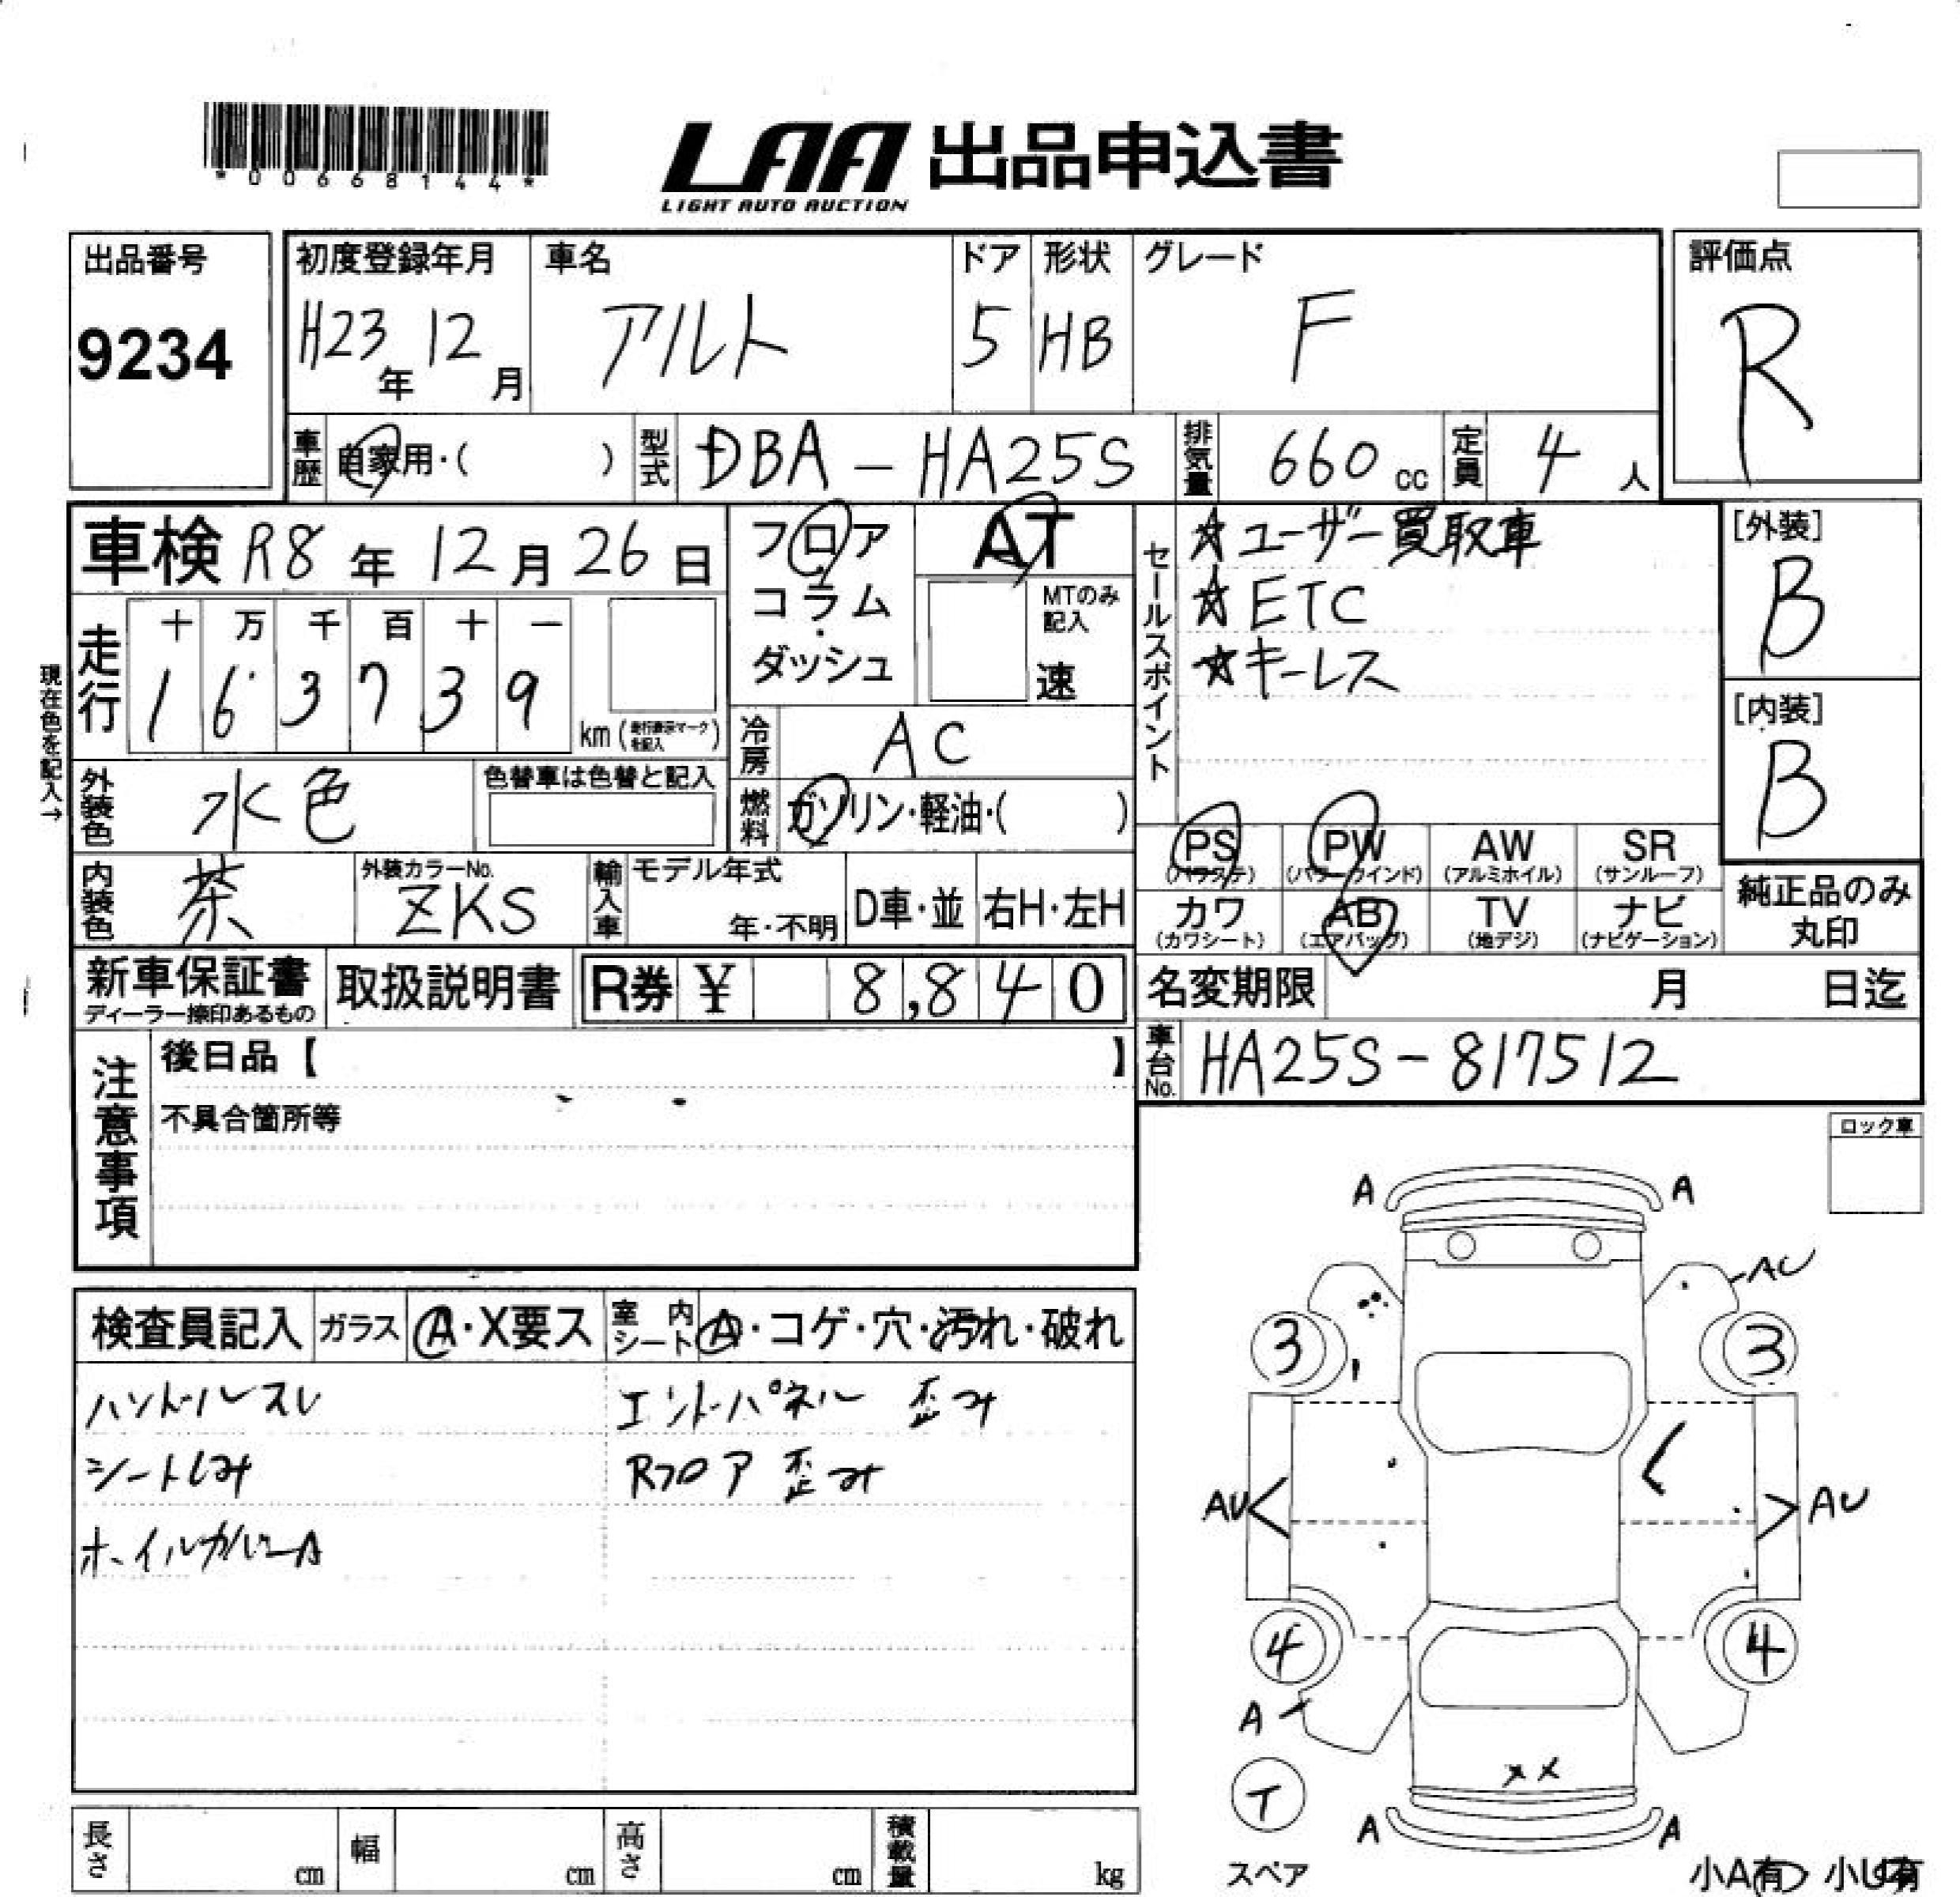 *00668144*
LAA 出品申込書
LIGHT AUTO AUCTION
出品番号
9234
初度登録年月
H23年 12月
車名
アルト
ドア
5
形状
HB
グレード
F
評価点
R
車歴 自家用・( )
型式 DBA-HA25S
排気量 660 cc
定員 4 人
車検 R8年 12月 26日
フロア
コラム
・
ダッシュ
AT
MTのみ
記入
速
セールスポイント
☆ユーザー買取車
☆ETC
☆キーレス
[外装]
B
[内装]
B
現在色を記入→
走行
十 万 千 百 十 一
1 6 3 7 3 9
km (走行表示マークを記入)
冷房 AC
外装色 水色
色替車は色替と記入
燃料 ガソリン・軽油・( )
内装色 茶
外装カラーNo.
ZKS
輸入車
モデル年式
年・不明
D車・並
右H・左H
PS
(パワステ)
PW
(パワーウインド)
AW
(アルミホイル)
SR
(サンルーフ)
カワ
(カワシート)
AB
(エアバッグ)
TV
(地デジ)
ナビ
(ナビゲーション)
純正品のみ
丸印
新車保証書
ディーラー捺印あるもの
取扱説明書
R券 ¥ 8,840
名変期限 月 日迄
車台No. HA25S-817512
注意事項
後日品【 】
不具合箇所等
ロック車
検査員記入
ガラス A・X要ス
室内シート A・コゲ・穴・汚れ・破れ
ハンドルスレ
シートしみ
ホイルカバーA
エンドパネル 歪み
Rフロア 歪み
A A
AU
3 3
AU AU
4 4
A
XX
T
A A
スペア
小A有 小U有
長さ cm
幅 cm
高さ cm
積載量 kg